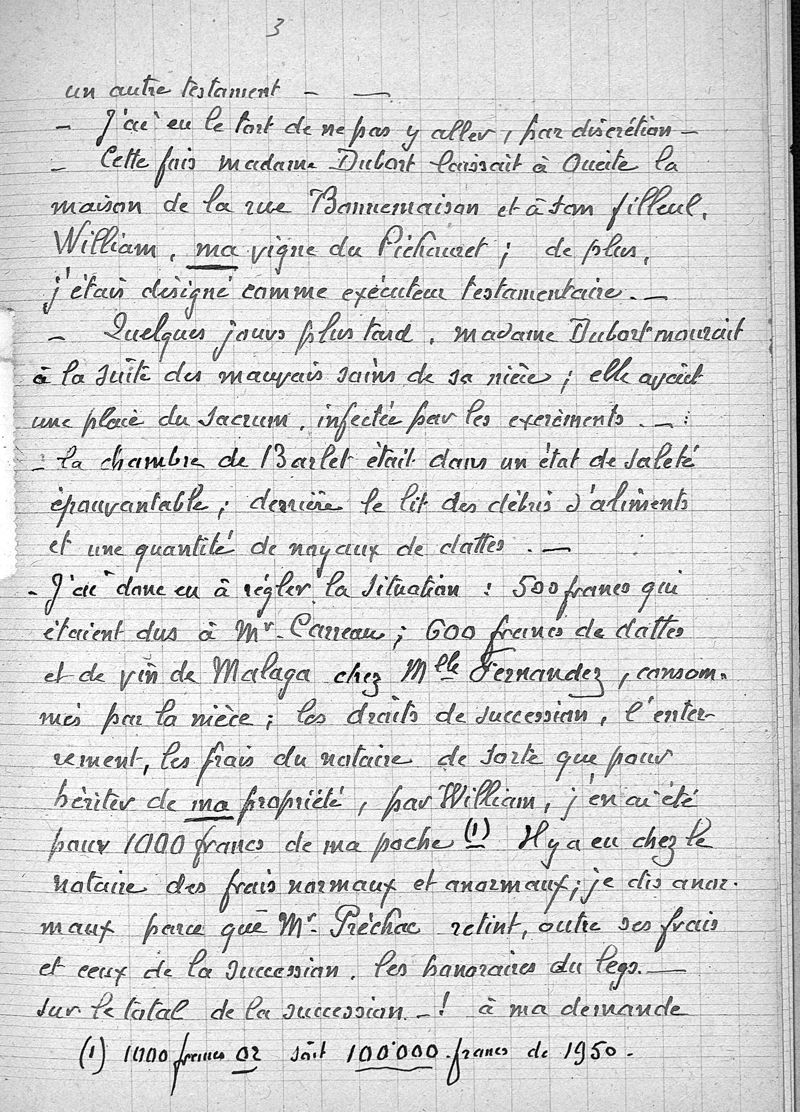 3
un autre testament — —
— J'ai eu le tort de ne pas y aller, par discrétion —
— Cette fois madame Dubort laissait à Queite la
maison de la rue Bonnemaison et à son filleul,
William, ma vigne du Pichauret ; de plus,
j'étais désigné comme exécuteur testamentaire. —
— Quelques jours plus tard, madame Dubort mourait
à la suite des mauvais soins de sa nièce ; elle avait
une plaie du sacrum, infectée par les excréments. — :
— la chambre de Barlet était dans un état de saleté
épouvantable ; derrière le lit des débris d'aliments
et une quantité de noyaux de dattes. —
— J'ai donc eu à régler la situation : 500 francs qui
étaient dus à Mr. Carreau ; 600 francs de dattes
et de vin de Malaga chez Melle Fernandez, consom-
més par la nièce ; les droits de succession, l'enter-
rement, les frais du notaire de sorte que pour
hériter de ma propriété, par William, j'en ai été
pour 1000 francs de ma poche (1) Il y a eu chez le
notaire des frais normaux et anormaux ; je dis anor-
maux parce que Mr. Préchac retint, outre ses frais
et ceux de la succession, les honoraires du legs. —
sur le total de la succession — ! à ma demande
(1) 1000 francs or soit 100'000 francs de 1950.